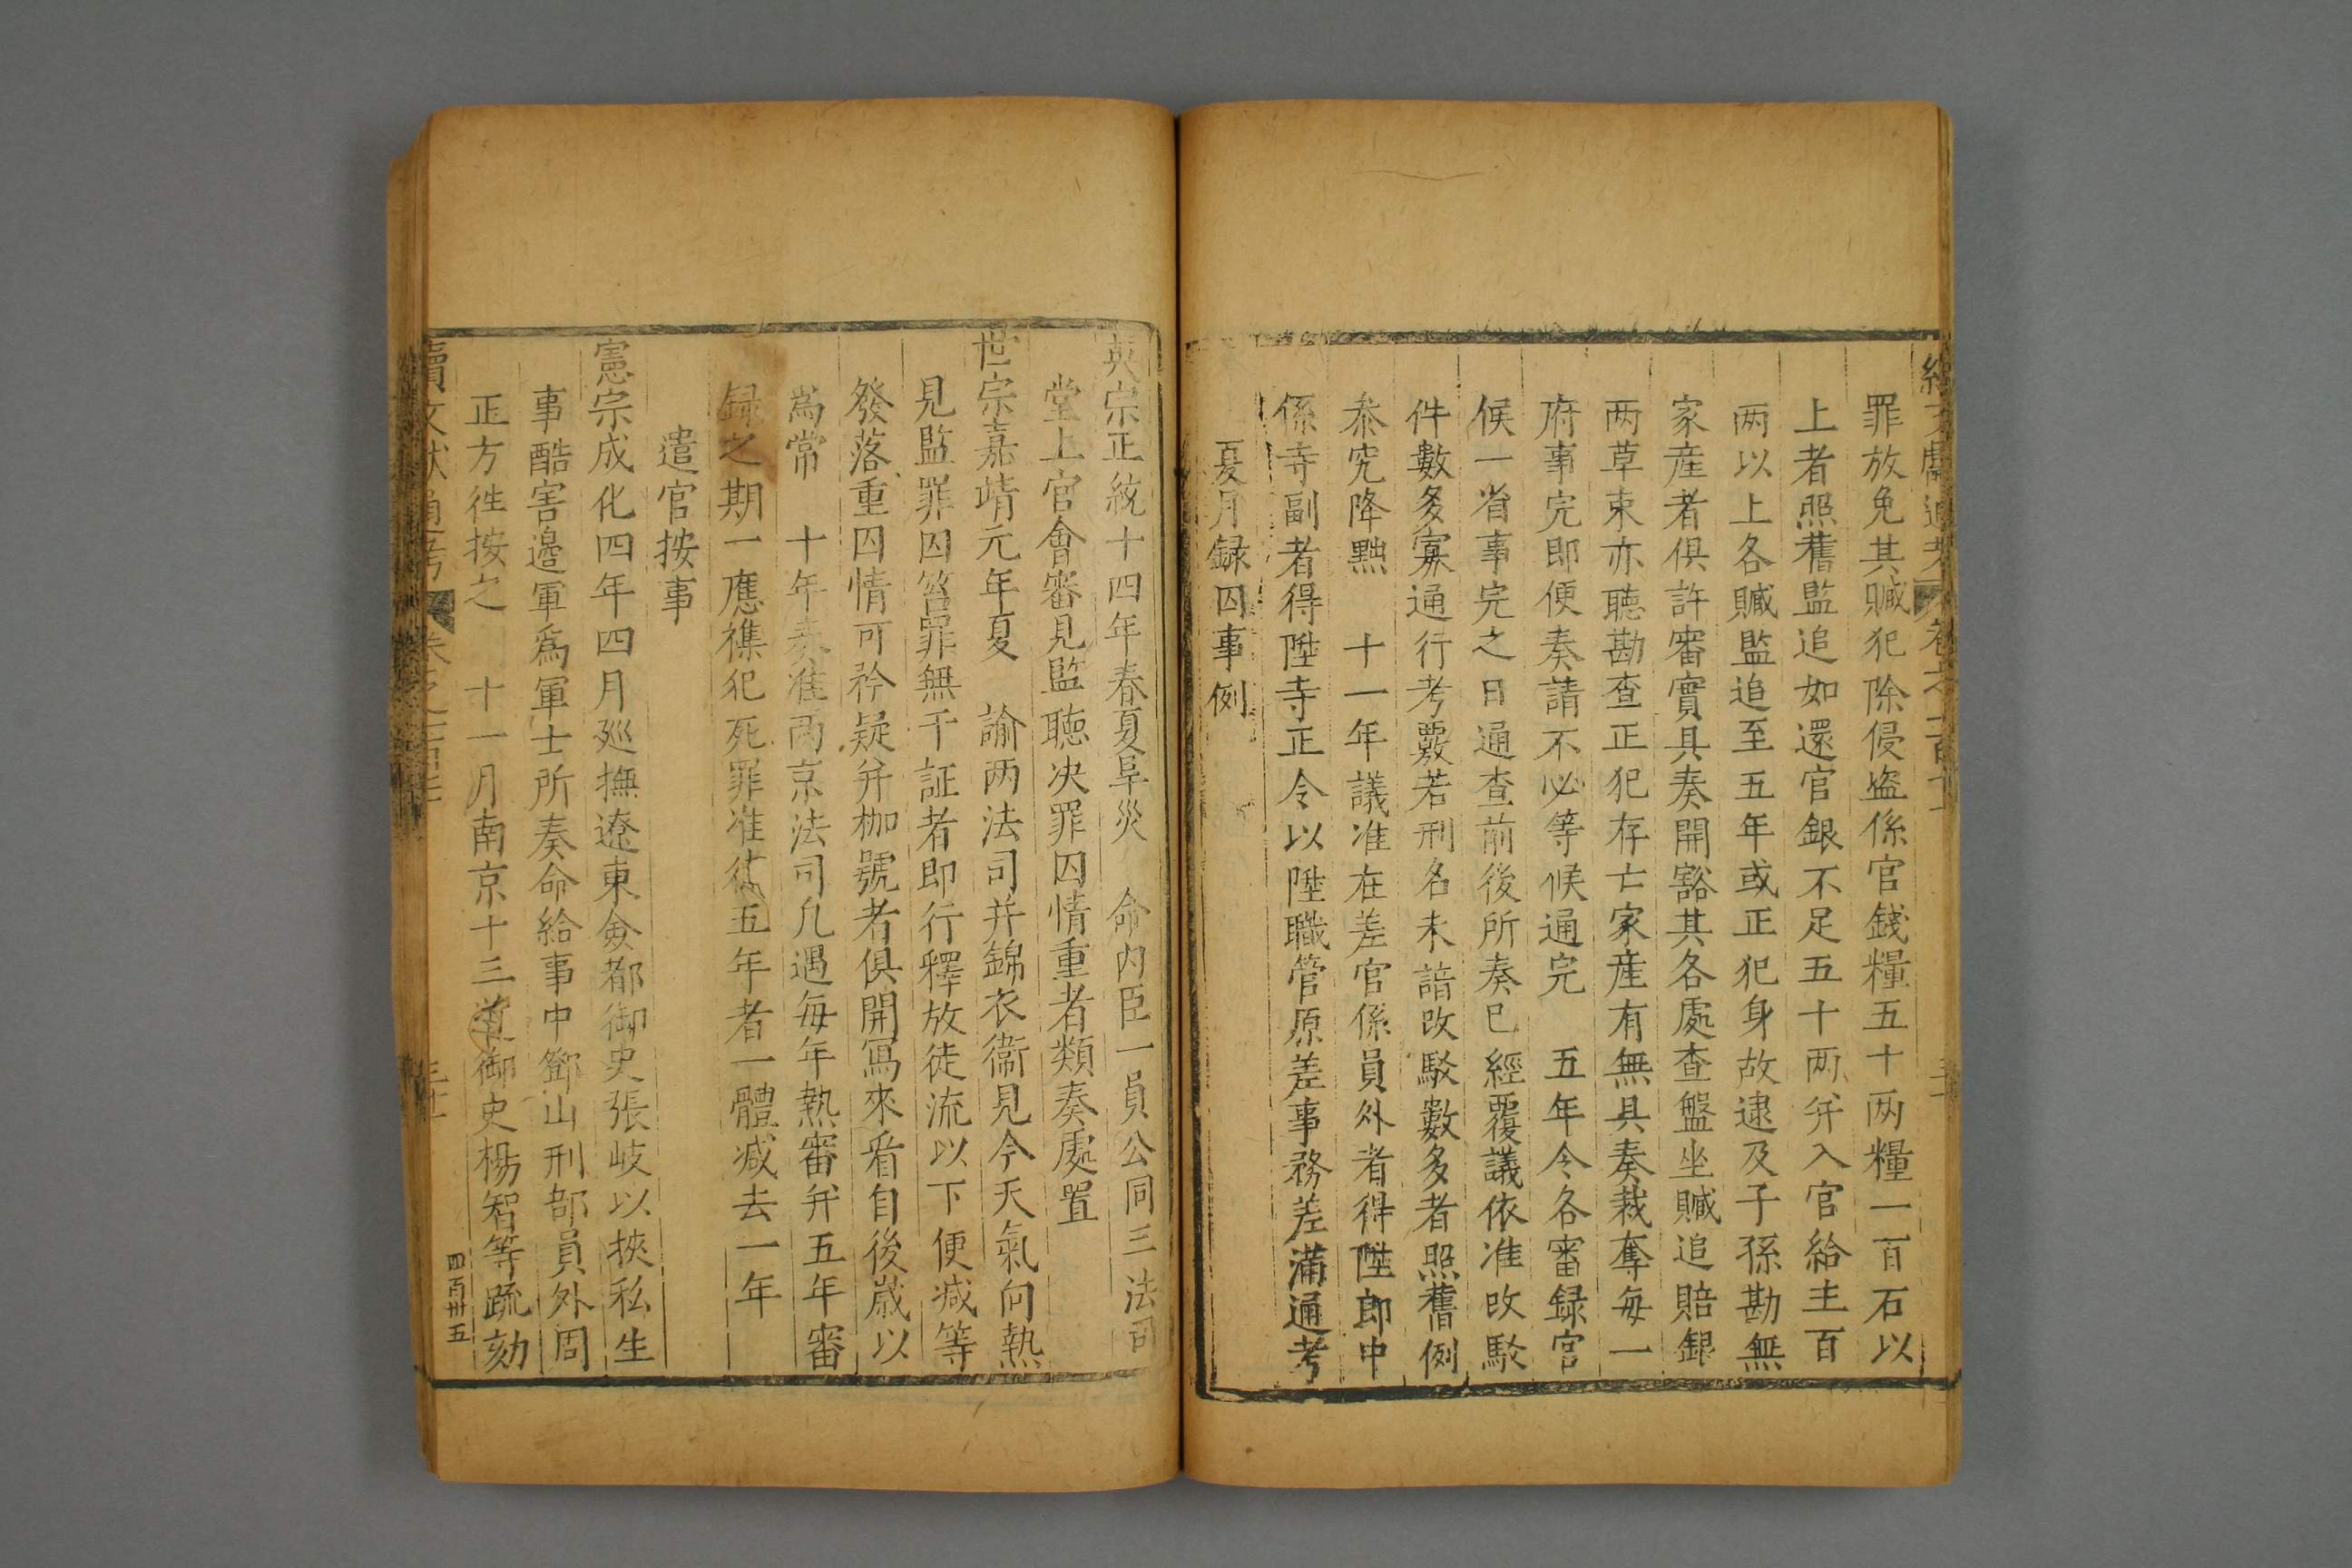 罪放免其贓犯除侵盗係官錢糧五十两糧一百石以
上者照舊監追如還官銀不足五十两并入官給主百
两以上各贓監追至五年或正犯身故逮及子孫勘無
家産者俱許審實具奏開豁其各處查盤坐贓追賠銀
两草束亦聴勘查正犯存亡家産有無具奏裁奪每一
府事完即便奏請不必等候通完　五年令各審録官
候一省事完之日通查前後所奏已經覆議依准改駁
件數多寡通行考覈若刑名未諳改駁數多者照舊例
叅究降黜　十一年議准在差官係員外者得陞郎中
係寺副者得陞寺正令以陞職管原差事務差滿通考
夏月録囚事例
英宗正統十四年春夏旱災　命内臣一員公同三法司
堂上官會審見監聴决罪囚情重者類奏處置
世宗嘉靖元年夏　諭两法司并錦衣衞見今天氣向熱
見監罪囚笞罪無干証者即行釋放徒流以下便减等
發落重囚情可矜疑并枷號者俱開冩來看自後歲以
為常　十年奏准兩京法司凡遇每年熱審并五年審
録之期一應襍犯死罪准徒五年者一體减去一年
遣官按事
憲宗成化四年四月廵撫遼東僉都御史張岐以挾私生
事酷害邊軍為軍士所奏命給事中鄧山刑部員外周
正方徃按之　十一月南京十三道御史楊智等疏劾
續文獻通考　卷之一百
四百卅五